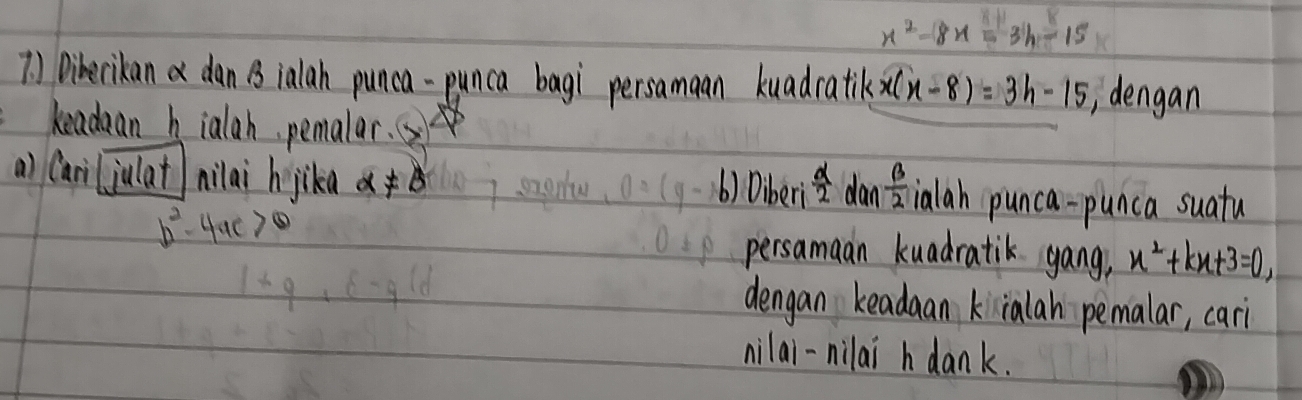 x² - 8x = 3h - 15
7.) Diberikan α dan β ialah punca-punca bagi persamaan kuadratik x(x-8) = 3h-15, dengan
keadaan h ialah pemalar.
a) Cari julat nilai h jika α ≠ β
b² - 4ac > 0
b) Diberi α/2 dan β/2 ialah punca-punca suatu
persamaan kuadratik yang, x²+kx+3=0,
dengan keadaan k ialah pemalar, cari
nilai-nilai h dan k.